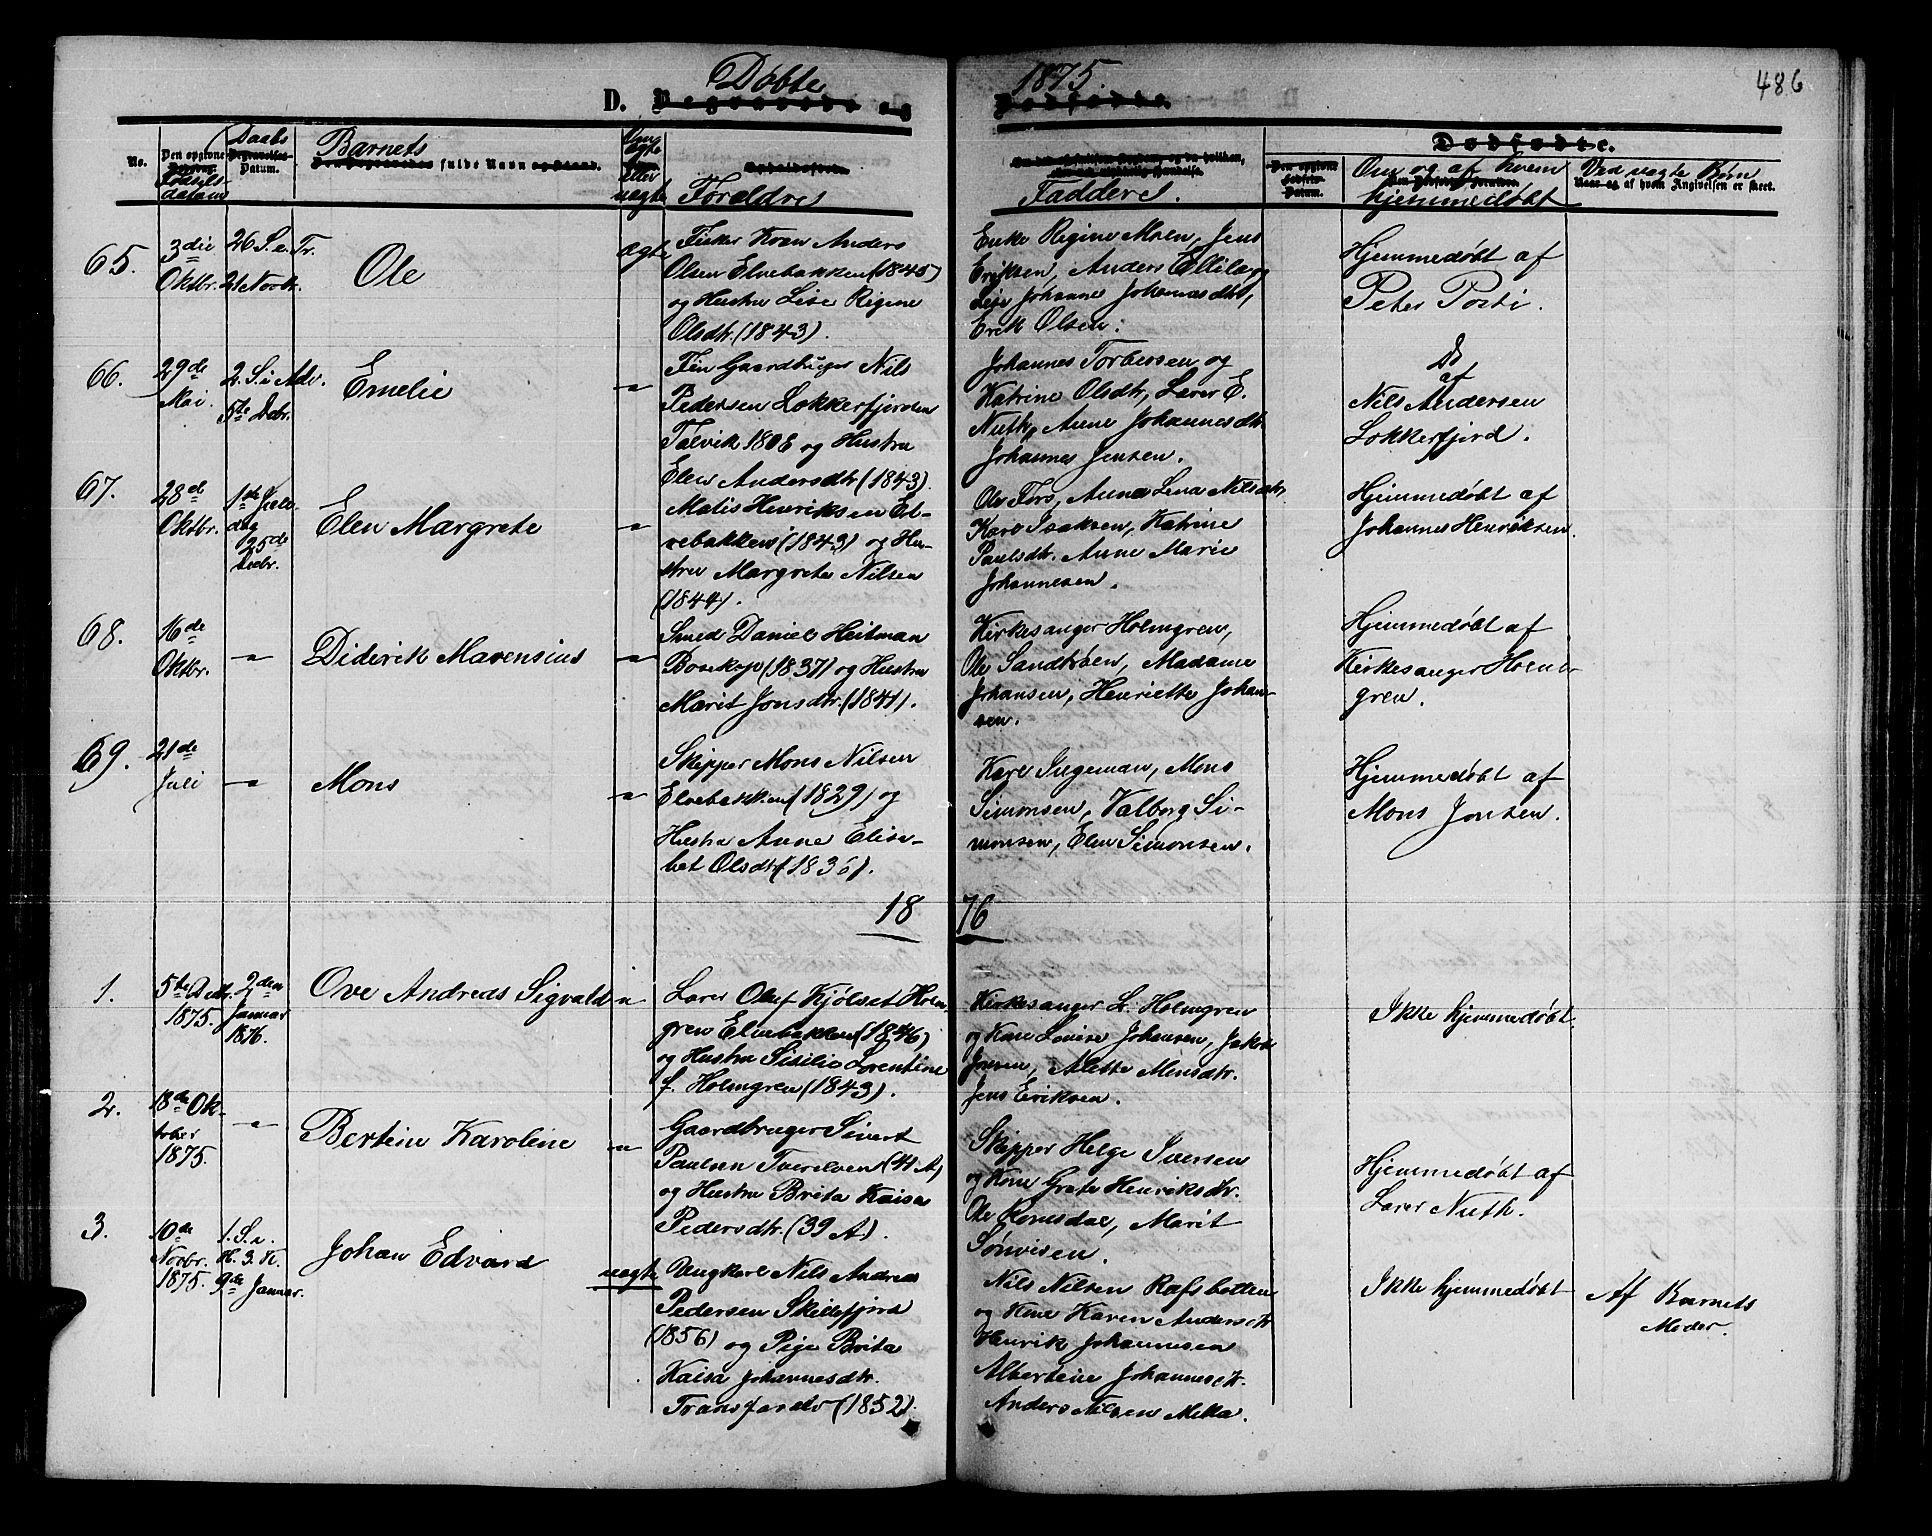 Døbte 1875. 486
D. Begravede og Dødfødte.
No.
Den opgivne Fødselsdatum
Daabs Datum.
Barnets fulde Navn
Om ægte eller uægte
Forældre
Faddere.
Dødfødte.
Om og af hvem hjemmedøbt
Ved uægte Børn
Naar og af hvem Angivelsen er skeet.
65.
3die
Oktbr.
26 S. e. Tr.
21 Novbr.
Ole
ægte
Anders
Olsen Elvebakken (1845)
og Hustru Lise Regine
Olsdtr. (1843).
Enke Regine Moen, Jens
Eriksen, Anders
Lise Johanne Johannesdtr,
Erik Olsen.
Hjemmedøbt af
Peter Posti.
66.
29de
Mai.
2. S. i Adv.
5te Debr.
Emelie
"
Fin Gaardbruger Nils
Pedersen Lokkerfjorden
Talvik og Hustru
Elen Andersdtr (1843).
Johannes Torbersen og
Katrine Olsdtr, Lærer E.
Nuth, Anne Johannesdtr.
Johannes Jensen.
Do
af
Nils Andersen
Lokkerfjord.
67.
28de
Oktbr.
1ste Juledag
25de
Debr.
Elen Margrete
"
Matis Henriksen El-
vebakken (1843) og Hu-
stru Margrete Nilsen
(1844).
Ole Fors, Anna Lena Nilsdtr
Karl Isaksen, Katrine
Paulsdtr. Anne Marie
Johannesen.
Hjemmedøbt af
Johannes Henriksen.
68.
16de
Oktbr.
"
Diderik Marensius
"
Smed Daniel Heitman
Bosekop (1837) og Hustru
Marit Jonsdtr. (1841).
Kirkesanger Holmgren,
Ole Sandbøen, Madame
Johansen, Henriette Johan-
sen.
Hjemmedøbt af
Kirkesanger Holm-
gren.
69.
21de
Juli
"
Mons
"
Skipper Mons Nilsen
Elvebakken (1829) og
Hustru Anne Elisa-
bet Olsdtr (1836).
Karl Ingeman, Mons
Simonsen, Valborg Si-
monsen, Elen Simonsen.
Hjemmedøbt af
Mons Jonsen.
1876
1.
5te Debr.
1875.
2den
Januar
1876.
Ove Andreas Sigvald
"
Lærer Oluf Kjølset Holm-
gren Elvebakken (1846)
og Hustru Sisilie Lorentine
f. Holmgren (1843).
Kirkesanger L. Holmgren
og Kone Louise Johansen, Jakob
Jensen, Alette Monsdtr.
Jens Eriksen.
Ikke hjemmedøbt.
2.
18de Ok-
tober
1875.
"
Bertine Karoline
"
Gaardbruger Sivert
Paulsen Tverelven (41 A)
og Hustru Brita Kaisa
Pedersdtr. (39 A).
Skipper Helge Iversen
og Kone Grete Henriksdtr.
Ole Romsdal, Marit
Sønvisen.
Hjemmedøbt af
Lærer Nuth.
3.
10de
Novbr.
1875.
1. S. e.
H. 3. K.
9de Januar.
Johan Edvard
uægte
Ungkarl Nils Andreas
Pedersen Skillefjord
(1856) og Pige Brita
Kaisa Johannesdtr.
Transfarelv (1852).
Nils Nilsen Rafsbotten
og Kone Karen Andersdtr
Henrik Johannesen
Albertine Johannesdtr.
Anders Nilsen Mella.
Ikke hjemmedøbt
Af Barnets
Moder.